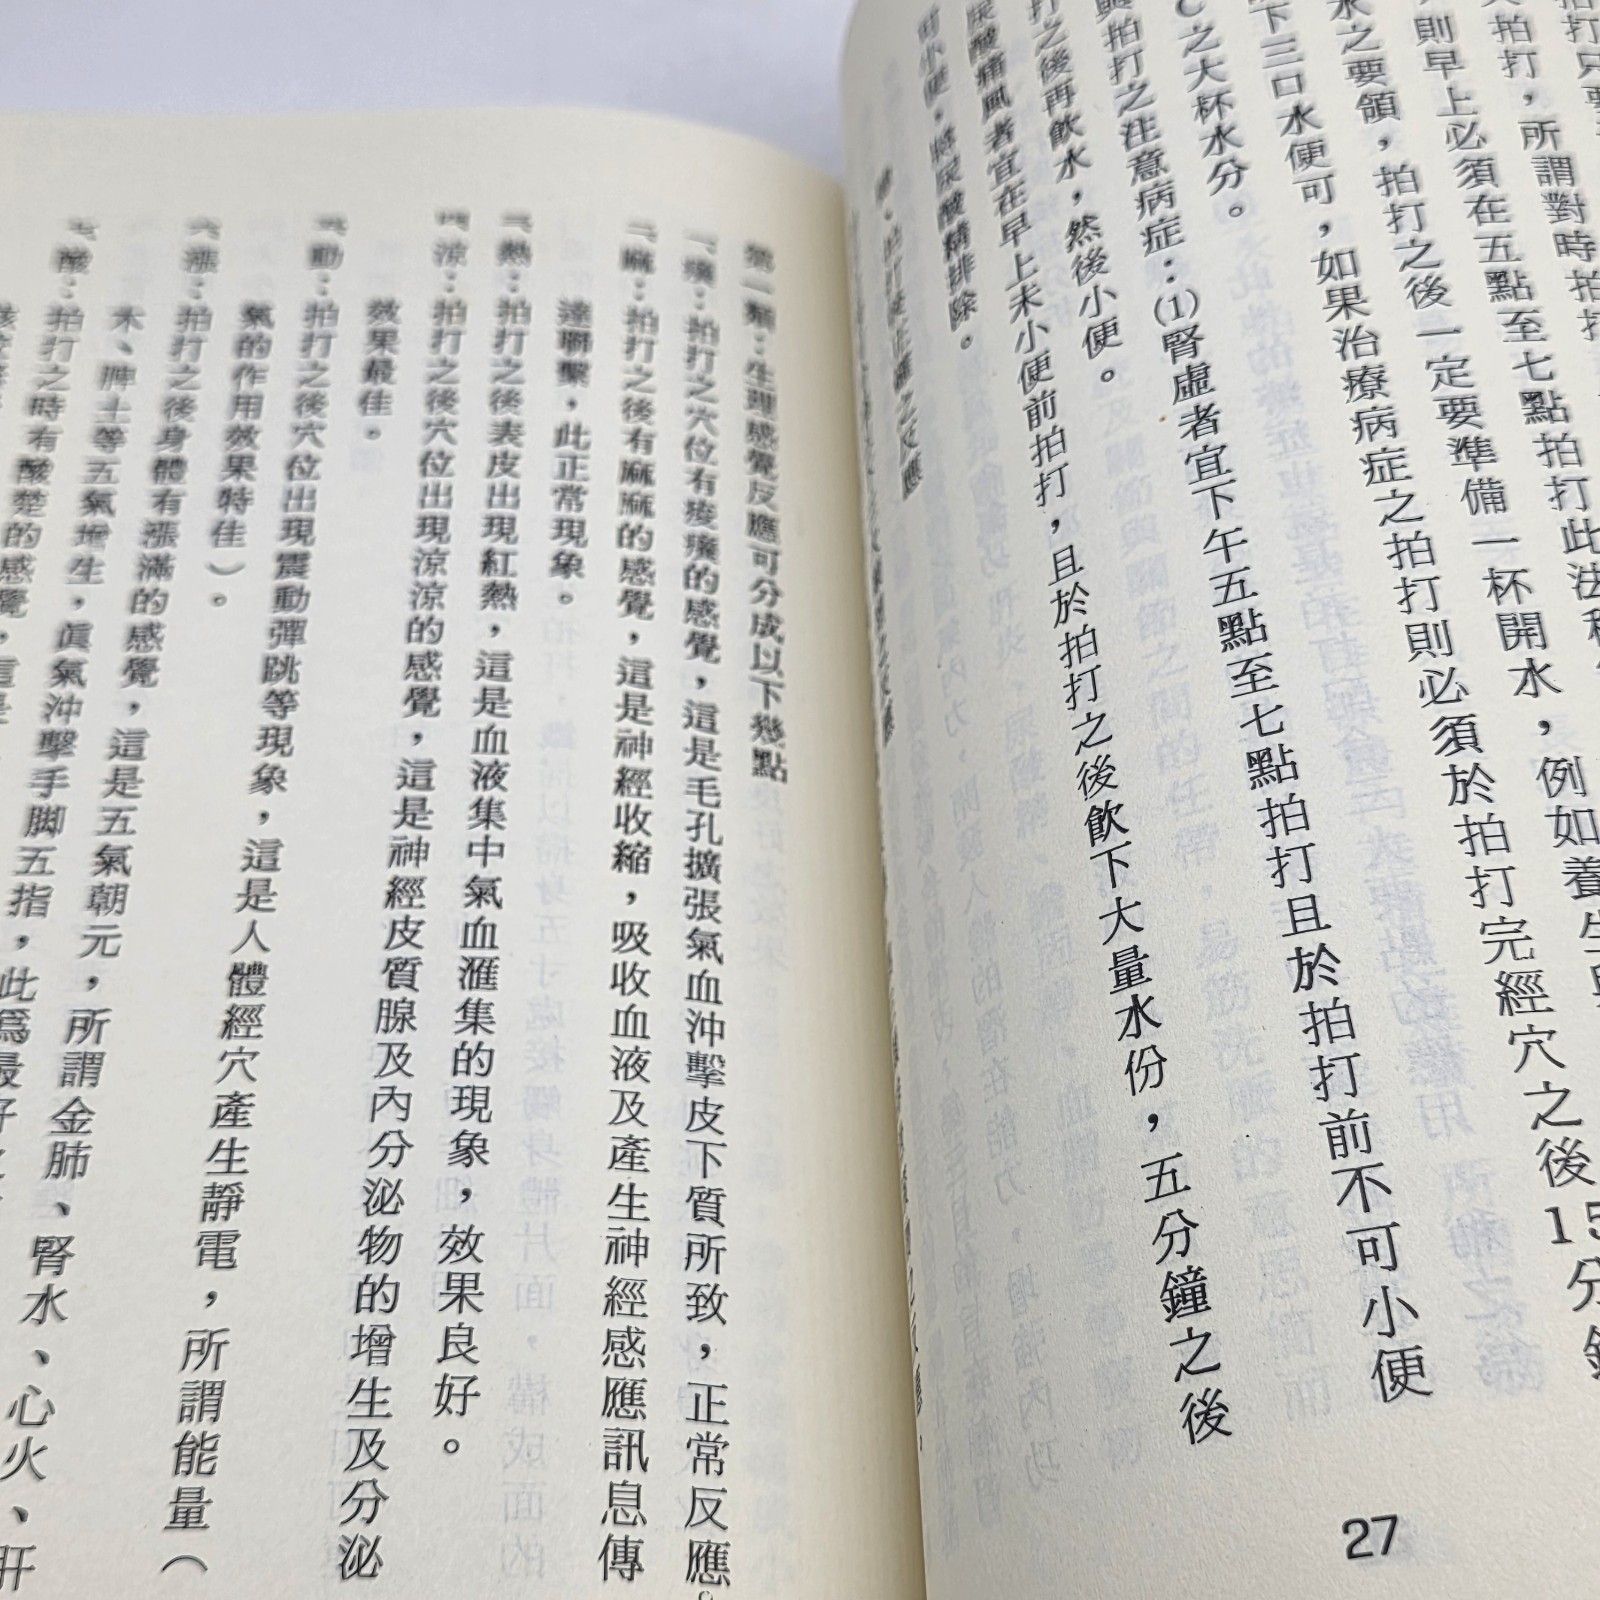 拍打只要
拍打，所謂對時拍打
則早上必須在五點至七點拍打此法
水之要領，拍打之後一定要準備一杯開水，例如養生
下三口水便可，如果治療病症之拍打則必須於拍打完經穴之後15分鐘
C之大杯水分。
與拍打之注意病症：(1)腎虛者宜下午五點至七點拍打且於拍打前不可小便
打之後再飲水，然後小便。
尿酸痛風者宜在早上未小便前拍打，且於拍打之後飲下大量水份，五分鐘之後
小便，將尿酸精排除。
拍打後正確之反應
27
第一類：生理感覺反應可分成以下幾點
一、癢：拍打之穴位有痠癢的感覺，這是毛孔擴張氣血沖擊皮下質所致，正常反應。
二、麻：拍打之後有麻麻的感覺，這是神經收縮，吸收血液及產生神經感應訊息傳
達聯繫，此正常現象。
三、熱：拍打之後表皮出現紅熱，這是血液集中氣血滙集的現象，效果良好。
四、涼：拍打之後穴位出現涼涼的感覺，這是神經皮質腺及內分泌物的增生及分泌
效果最佳。
五、動：拍打之後穴位出現震動彈跳等現象，這是人體經穴產生靜電，所謂能量（
氣的作用效果特佳）。
六、漲：拍打之後身體有漲滿的感覺，這是五氣朝元，所謂金肺、腎水、心火、肝
木、脾土等五氣增生，眞氣沖擊手脚五指，此爲最好
七、酸：拍打之時有酸楚的感覺，這是